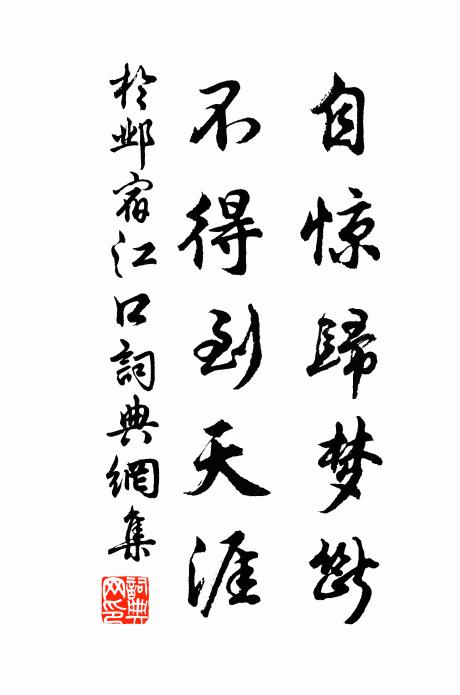 自惊歸梦断
不得到天涯
於邺宿江口詞典網集
詞典网印